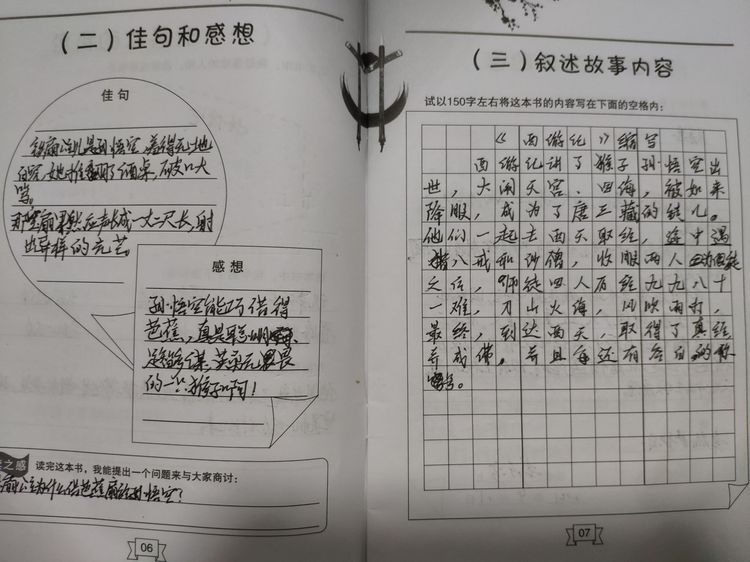 （二）佳句和感想
佳句
孙悟空，羞得无地
自容，她推翻了酒桌，破口大
骂。
那扇果然应声长成一丈二尺长，射
出异样的光芒。
感想
孙悟空能巧借得
芭蕉，真是聪明
足智多谋，英勇无畏
的一只猴子啊！
之感
读完这本书，我能提出一个问题来与大家商讨：
扇公主为什么借芭蕉扇给孙悟空？
06
（三）叙述故事内容
试以150字左右将这本书的内容写在下面的空格内：
《西游记》缩写
西游记讲了猴子孙悟空出
世，大闹天宫、四海，被如来
降服，成为了唐三藏的徒儿。
他们一起去西天取经，途中遇
猪八戒和沙僧，收服两人
之后，师徒四人历经九九八十
一难，刀山火海，风吹雨打，
最终，到达西天，取得了真经
并成佛。并且每还有各自的称
号。
07